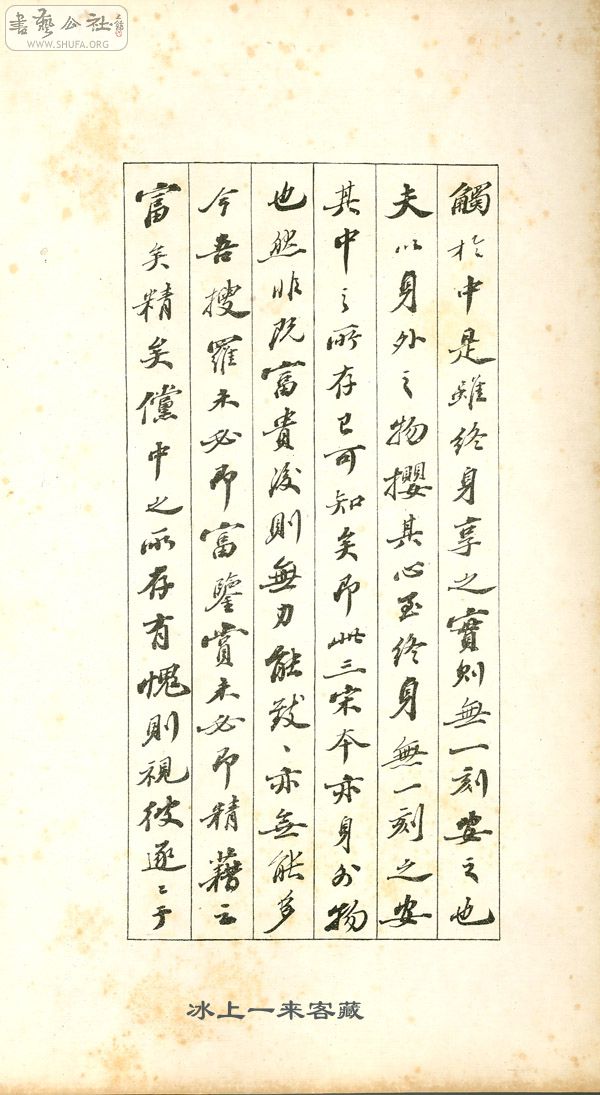 書藝公社
WWW.SHUFA.ORG
觸於中是雖終身享之實則無一刻安之也
夫以身外之物攖其心至終身無一刻之安
其中之所存已可知矣即此三宋本亦身外物
也然非既富貴後則無力能致〻亦無能多
今吾搜羅未必即富鑒賞未必即精藉云
富矣精矣儻中之所存有愧則視彼逐〻于
冰上一来客藏